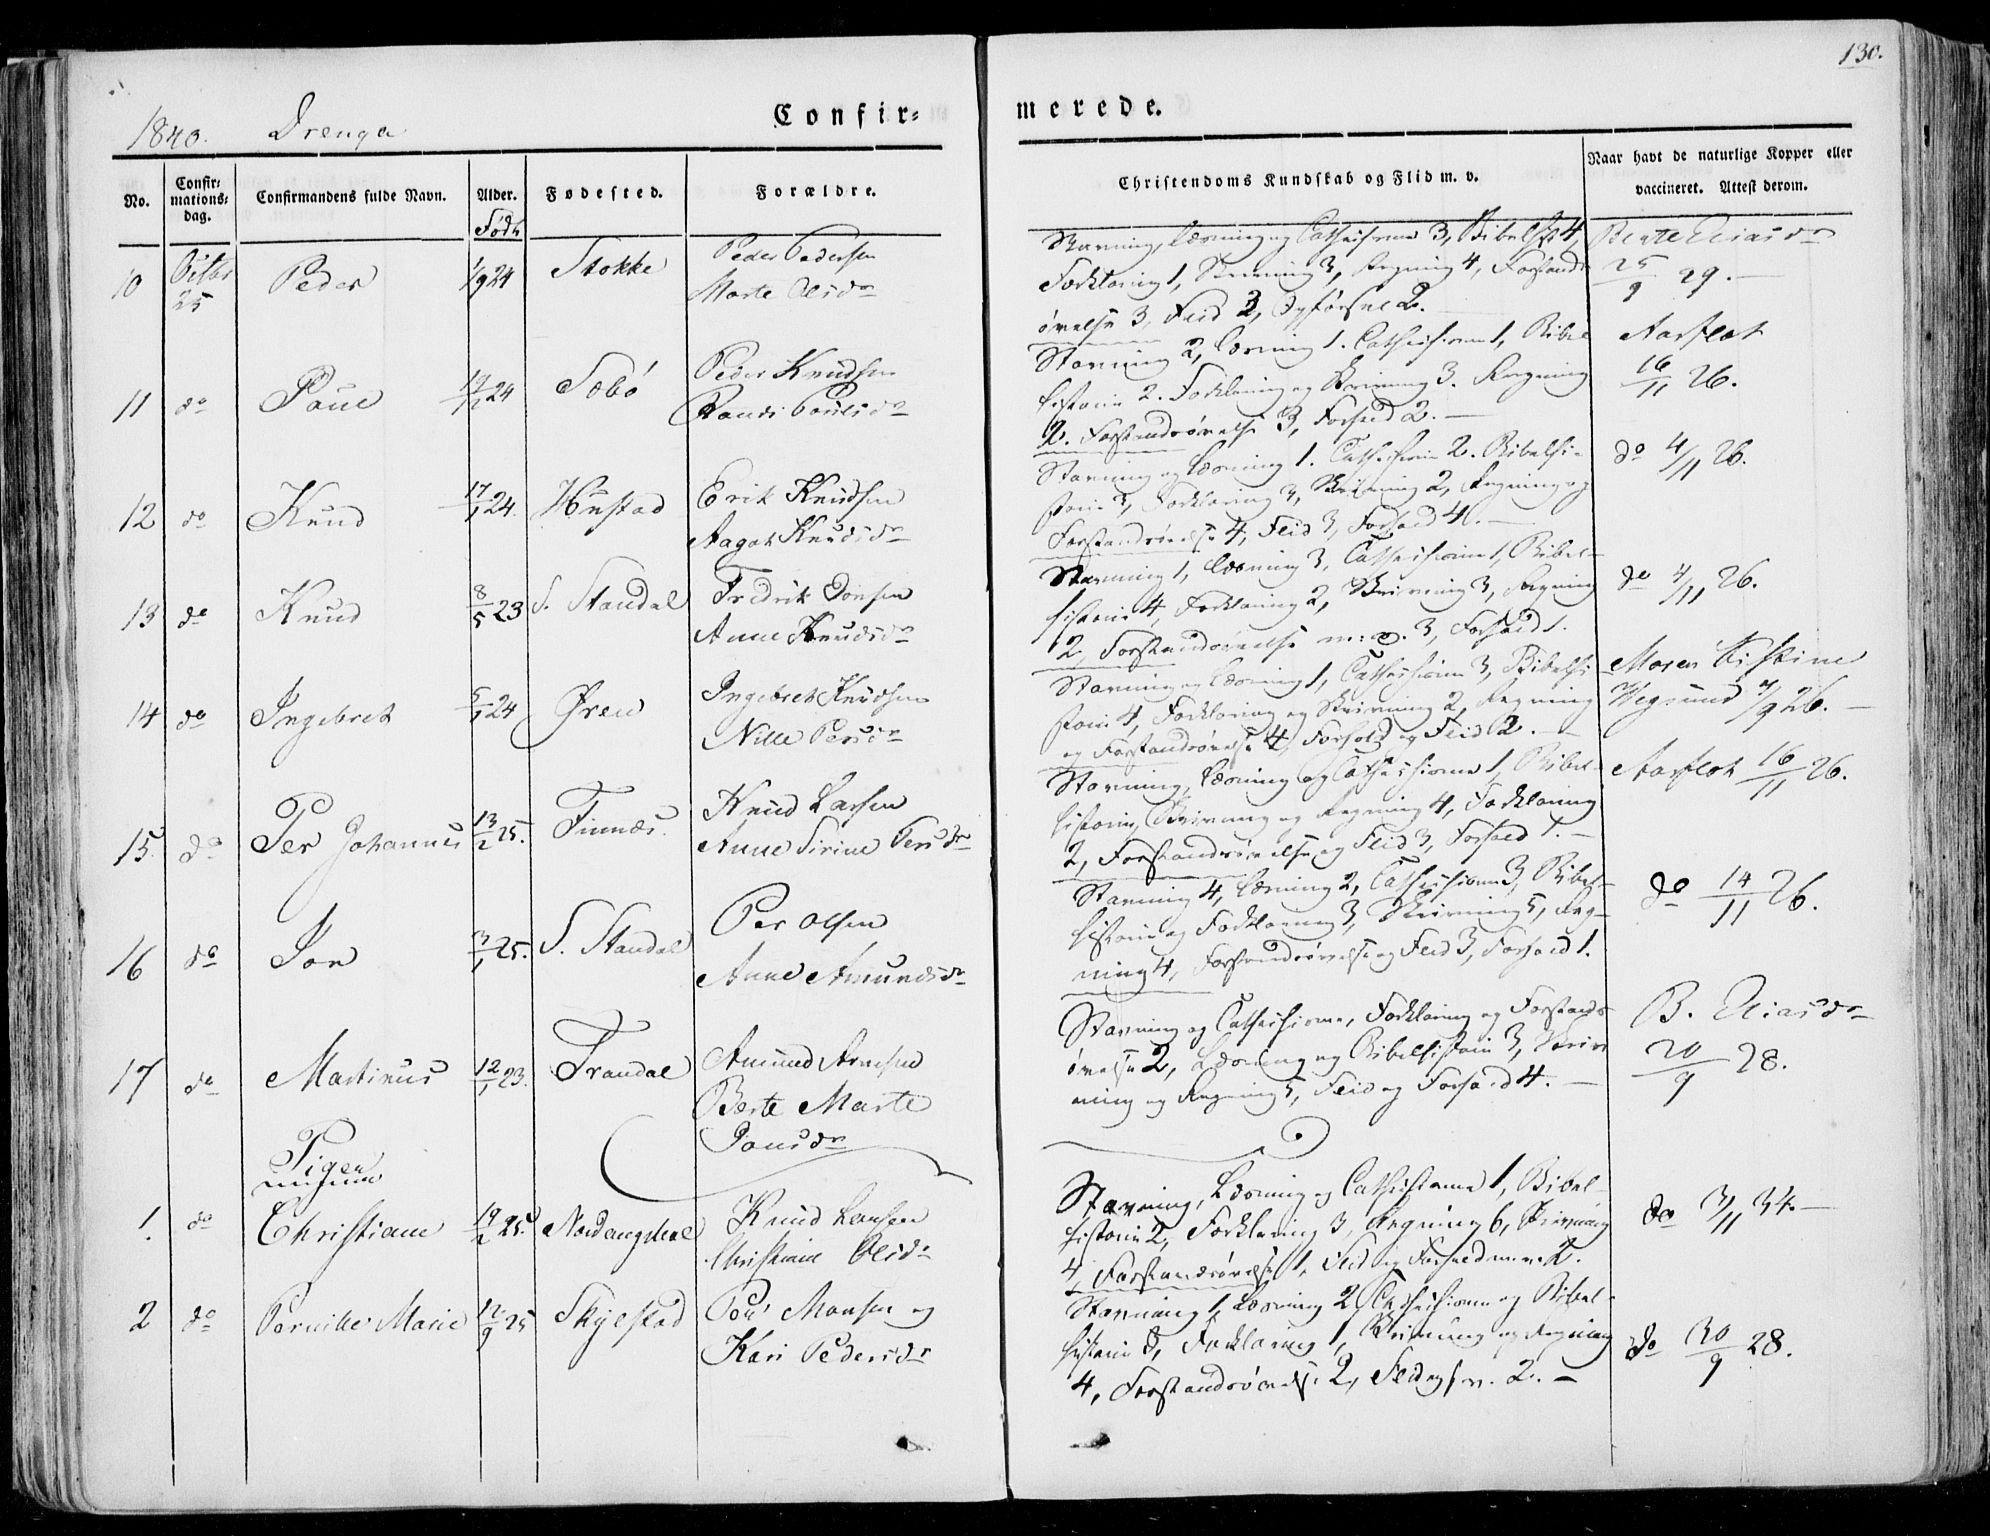 130.
1840. Drenge
Confir=
merede.
No.
Confir=
mations=
dag.
Confirmandens fulde Navn.
Alder.
Født
Fødested.
Forældre.
Christendoms Kundskab og Flid m. v.
Naar havt de naturlige Kopper eller
vaccineret. Attest derom.
10 Octbr 25 Peder 1/9 24 Stokke Peder Pedersen
Marte Olsdr
Stavning, Læsning og Cathechisme 3, Bibelhist 4,
Forklaring 1, Skrivning 3, Regning 4, Forstands
øvelse 3, Flid 2, Opførsel 2.
Bente Eliasdr
25/9 29.
11 do Poul 19/12 24 Sæbø Peder Knudsen
Randi Poulsdr
Stavning 2, Læsning 1. Cathechisme 1, Bibel
historie 2. Forklaring og Skrivning 3. Regning
2. Forstandsøvelse 3, Forhold 2.
Aarflot
16/11 26.
12 do Knud 17/1 24. Hustad Erik Knudsen
Aagot Knudsdr
Stavning og Læsning 1. Cathechisme 2. Bibelhi-
storie 3, Forklaring 3, Skrivning 2, Regning og
Forstandsøvelse 4, Flid 3, Forhold 4.
do 4/11 26.
13 do Knud 8/5 23 S. Standal Fredrik Jonsen
Anne Knudsdr
Stavning 1, Læsning 3, Cathechisme 1, Bibel-
historie 4, Forklaring 2, Skrivning 3, Regning
2, Forstandsøvelse m: v. 3, Forhold 1.
do 4/11 26.
14 do Ingebret 5/1 24 Øren Ingebret Knudsen
Nille Persdr
Stavning og Læsning 1, Cathechisme 3, Bibelhi
storie 4, Forklaring og Skrivning 2, Regning
og Forstandsøvelse 4, Forhold og Flid 2.
Maren Kistine
Vegsund 4/9 26.
15. do Per Johannes 13/2 25. Finnæs. Knud Larsen
Anne Sirine Persdr
Stavning, Læsning og Cathechisme 1, Bibel-
historie, Skrivning og Regning 4, Forklaring
2, Forstandsøvelse og Flid 3, Forhold 1.
Aarflot 16/11 26.
16 do Jon 3/1 25. S. Standal Per Olsen
Anne Amundsdr
Stavning 4, Læsning 2, Cathechisme 3, Bibel-
historie og Forklaring 3, Skrivning 5, Reg-
ning 4, Forstandsøvelse og Flid 3, Forhold 1.
do 14/11 26.
17 do Martinus 12/1 23. Trandal Amund Arnesen
Berte Marte
Jonsdr
Stavning og Cathechisme, Forklaring og Forstands
øvelse 2, Læsning og Bibelhistorie 3, Skriv
ning og Regning 5, Flid og Forhold 4.
B. Eliasdr
20/9 28.
Piger
1. do Christiane 19/2 25. Nordangsdal Knud Larsen
Christiane Olsdr
Stavning, Læsning og Cathechisme 1, Bibel-
historie 2, Forklaring 3, Regning 6, Skrivning
4, Forstandsøvelse 1, Flid og Forhold m: v. 2.
do 3/11 34.
2 do Pernille Marie 12/9 25 Skylstad Per Monsen og
Kari Pedersdr
Stavning 1, Læsning 2, Cathechisme og Bibel-
historie 3, Forklaring 1, Skrivning og Regning
4, Forstandsøvelse 2, Flid og f. v. 2.
do 30/9 28.